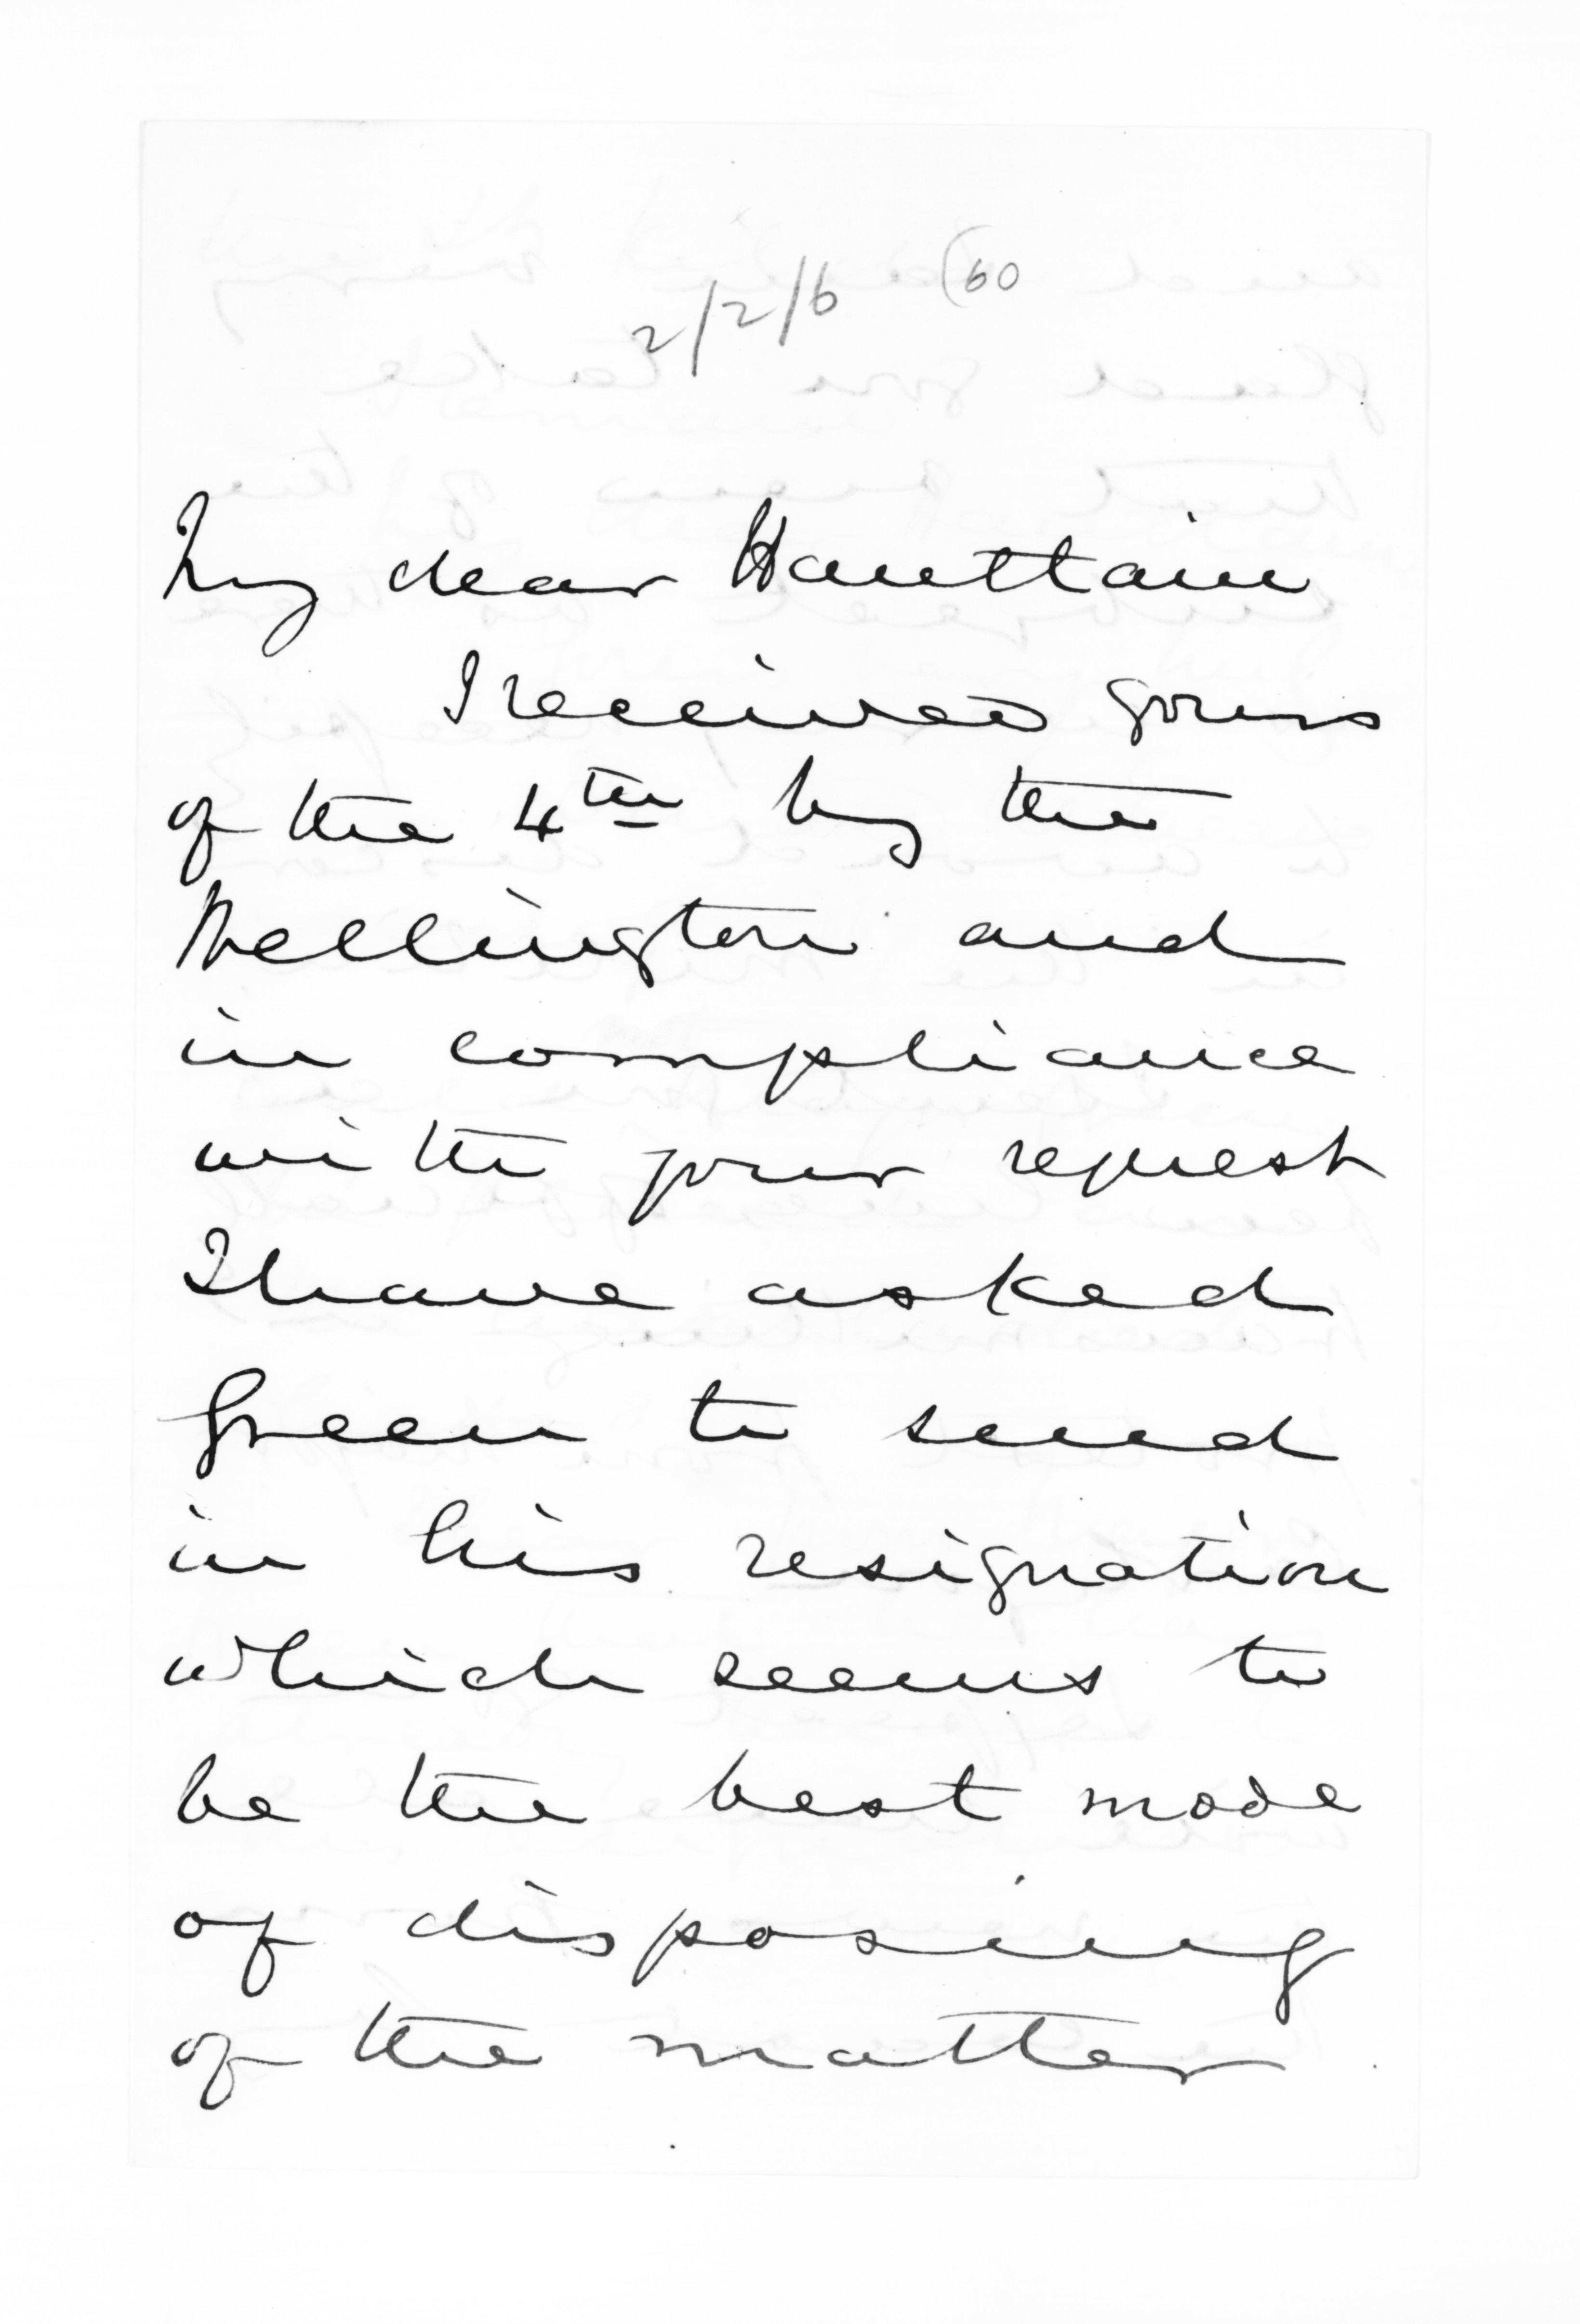 2/2/6 (60
My dear Haultain
I received yours
of the 4th by the
Wellington and
in compliance
with your request
I have asked
Green to send
in his resignation
which seems to
be the best mode
of disposing
of the matter